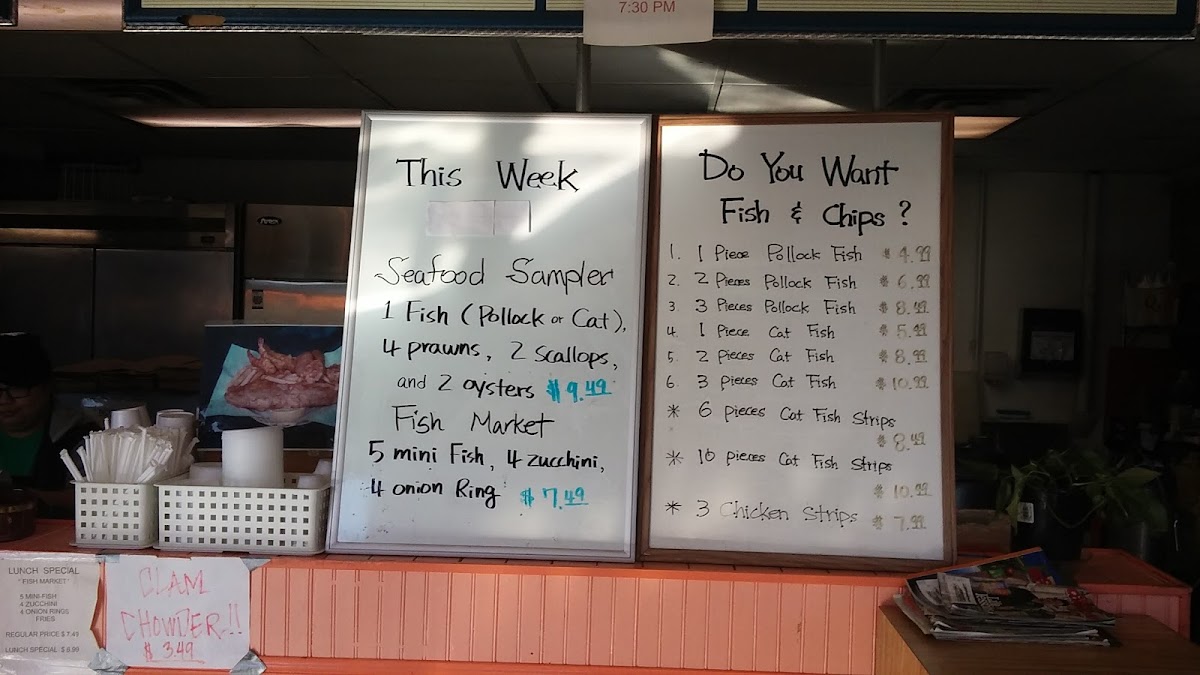 7:30 PM
This Week
Seafood Sampler
1 Fish (Pollock or Cat),
4 prawns, 2 scallops,
and 2 oysters $9.49
Fish Market
5 mini Fish, 4 zucchini,
4 onion Ring $7.49
Do You Want
Fish & Chips?
1. 1 Piece Pollock Fish $4.99
2. 2 Pieces Pollock Fish $6.99
3. 3 Pieces Pollock Fish $8.49
4. 1 Piece Cat Fish $5.49
5. 2 pieces Cat Fish $8.99
6. 3 pieces Cat Fish $10.99
* 6 pieces Cat Fish Strips
$8.49
* 10 pieces Cat Fish Strips
$10.99
* 3 Chicken Strips $7.99
LUNCH SPECIAL
"FISH MARKET"
5 MINI-FISH
4 ZUCCHINI
4 ONION RINGS
FRIES
REGULAR PRICE $7.49
LUNCH SPECIAL $6.99
CLAM
CHOWDER!!
$3.49